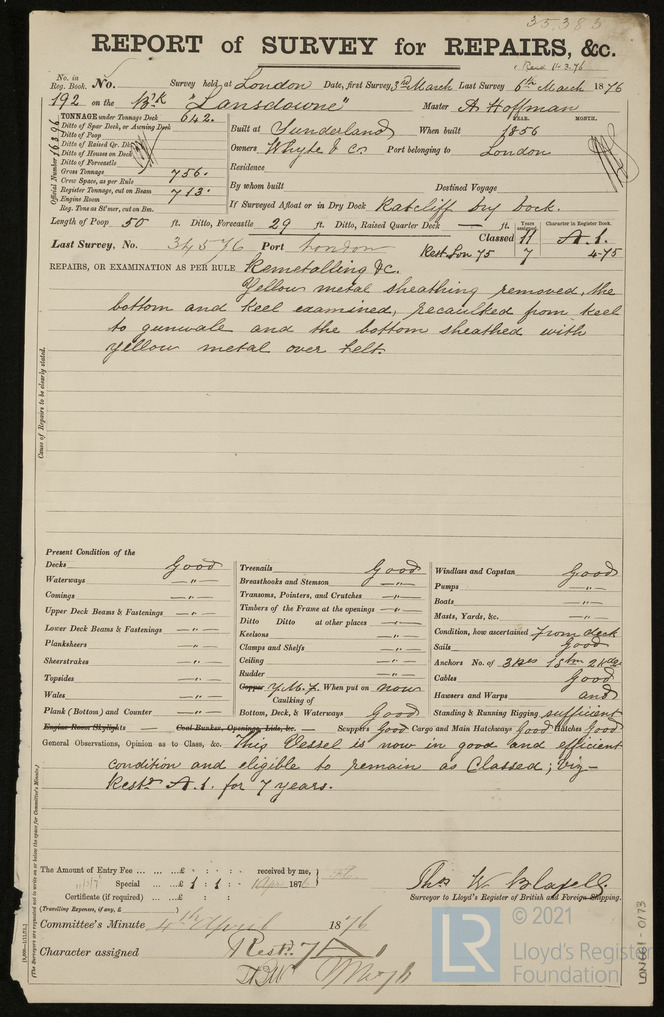 35383
REPORT of SURVEY for REPAIRS, &c.
No. in Reg. Book. No. Survey held at London Date, first Survey 3rd March Last Survey 6th March 1876
192 on the Bk "Lansdowne" Master A Hoffman
TONNAGE under Tonnage Deck 642.
Ditto of Spar Deck, or Awning Deck
Ditto of Poop
Ditto of Raised Qr. Dk.
Ditto of Houses on Deck
Ditto of Forecastle
Gross Tonnage 756.
Crew Space, as per Rule
Register Tonnage, cut on Beam 713.
Engine Room
Reg. Tons as St'mer, cut on Bm.
Official Number 16396
Built at Sunderland When built YEAR. 1856 MONTH.
Owners Whyte & Co Port belonging to London
Residence
By whom built Destined Voyage
If Surveyed Afloat or in Dry Dock Ratcliff dry dock.
Length of Poop 50 ft. Ditto, Forecastle 29 ft. Ditto, Raised Quarter Deck — ft.
Years assigned. Character in Register Book.
Last Survey, No. 34576 Port London Classed 11 A.1.
Rest. Lon 75 7 4-75
REPAIRS, OR EXAMINATION AS PER RULE Remetalling &c.
Yellow metal sheathing removed, the
bottom and keel examined, recaulked from keel
to gunwale and the bottom sheathed with
yellow metal over felt.
Cause of Repairs to be clearly stated.
Present Condition of the
Decks Good
Waterways —"—
Comings —"—
Upper Deck Beams & Fastenings —"—
Lower Deck Beams & Fastenings —"—
Planksheers —"—
Sheerstrakes —"—
Topsides —"—
Wales —"—
Plank (Bottom) and Counter —"—
Treenails Good
Breasthooks and Stemson —"—
Transoms, Pointers, and Crutches —"—
Timbers of the Frame at the openings —"—
Ditto Ditto at other places —"—
Keelsons —"—
Clamps and Shelfs —"—
Ceiling —"—
Rudder —"—
Copper Y.M.f. When put on now
Caulking of
Bottom, Deck, & Waterways Good
Windlass and Capstan Good
Pumps —"—
Boats —"—
Masts, Yards, &c. —"—
Condition, how ascertained from deck
Sails Good
Anchors No. of
Cables Good
Hawsers and Warps and
Standing & Running Rigging sufficient
Engine Room Skylights — Coal Bunker, Openings, Lids, &c. — Scuppers Good Cargo and Main Hatchways Good Hatches Good
General Observations, Opinion as to Class, &c. This Vessel is now in good and efficient
condition and eligible to remain as Classed; viz—
Restd A.1. for 7 years.
The Amount of Entry Fee ... ... £ : : received by me,
Special ... £ 1 : 1 : 187
Certificate (if required) ... £ : :
(Travelling Expenses, if any, £ )
Thos W
Surveyor to Lloyd's Register of British and Foreign Shipping.
Committee's Minute 4th April 1876
Character assigned Rest. 7 A 1
(The Surveyors are requested not to write on or below the space for Committee's Minute.)
LON661-0173
LR © 2021
Lloyd's Register
Foundation